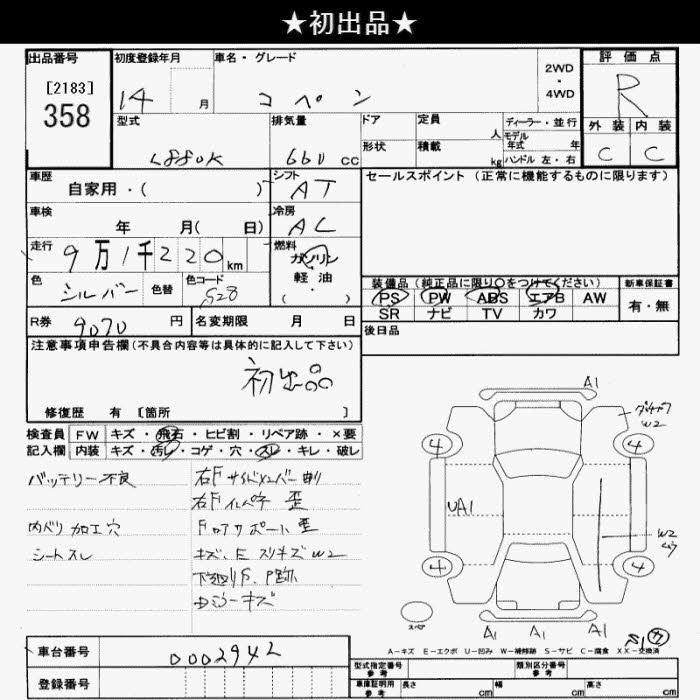 ★初出品★
出品番号
[2183]
358
初度登録年月
14 月
車名・グレード
コペン
2WD
・
4WD
評価点
R
外装 内装
C C
型式
L880K
排気量
660 cc
ドア
定員
人
ディーラー・並行
モデル
年式 年
形状
積載
kg
ハンドル 左・右
車歴
自家用・( )
シフト
AT
セールスポイント (正常に機能するものに限ります)
車検
年 月( 日)
冷房
AC
走行
9万1千220km
燃料
ガソリン
軽油
( ・ )
色
シルバー
色替
色コード
S28
装備品 (純正品に限り○をつけてください)
PS PW ABS エアB AW
SR ナビ TV カワ
新車保証書
有・無
R券
9070 円
名変期限 月 日
後日品
注意事項申告欄(不具合内容等は具体的に記入して下さい)
初出品
修復歴 有 [箇所 ]
検査員 FW キズ・飛石・ヒビ割・リペア跡・×要
記入欄 内装 キズ・汚し・コゲ・穴・スレ・キレ・破レ
バッテリー不良
内ベリ加工穴
シートスレ
右Fサイドメンバー
右Fインパネ 歪
Fロアサポート歪
キズ、E スリキズW2
下廻りS、P跡
キズ
A1
W2
4
4
UA1
W2
4
4
スペア
A1
A1
A1
S1
A-キズ E-エクボ U-凹み W-補修跡 S-サビ C-腐食 XX-交換済
車台番号
0002942
登録番号
型式指定番号
参考
類別区分番号
参考
車庫証明用
参考
長さ cm
幅 cm
高さ cm